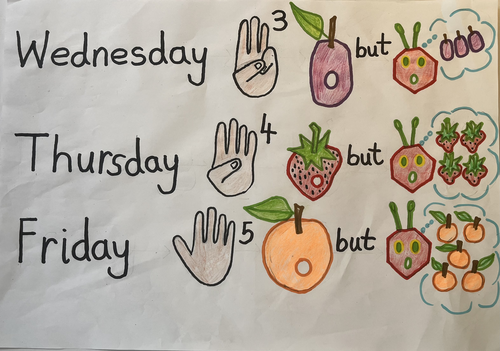 Wednesday 3 but
Thursday 4 but
Friday 5 but